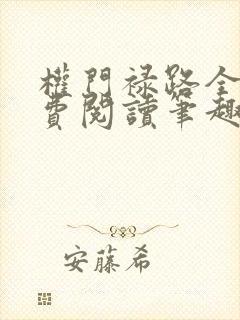 權門禄路全
費閱讀筆趣
安藤希